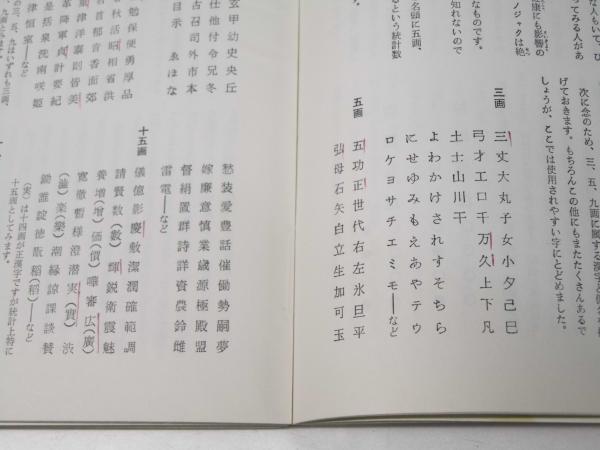 な人もいて、ひ
てみる人があ
康にも影響の
ノジャクは絶
なものです。
知れないので
名頭に五画、
るという統計数
次に念のため、三、五、九画に属する漢字
げておきます。もちろんこの他にもまだたくさんあるで
しょうが、ここでは使用されやすい字にとどめました。
三画
三丈大丸子女小夕己巳
弓才工口千万久上下凡
土士山川干
よわかけされすそちら
にせゆみもえあやテウ
ロケヨサチエミモ――など
五画
五功正世代右左氷旦平
弘母石矢白立生加可玉
玄甲幼史央丘
仕他付令兄冬
古召司外市本
目示　ゑほな
勉保便勇厚品
秋活昭相省洪
首郁音香面郊
津洋泰則皆美
革降軍貞計要紀
是括泉洗南咲姫
津恒室――など
、五、九はいずれも三画、
十五画
愁装愛豊話催働勢嗣夢
嫁廉意慎業歳源極殿盟
督絹置群詩詳資農鈴雌
雷電――など
儀億影慶敷潔潤確範馬
請賛数（數）輝鋭衛震魅
養増（增）価（價）嘩審広（廣）
寛徹暫様澄潜実（實）渋
（澁）楽（樂）潮縁諒課談賛
鋤誰諚徳敷稲（稻）――など
（実）は十四画が正漢字ですが統計上特に
十五画としてみます。